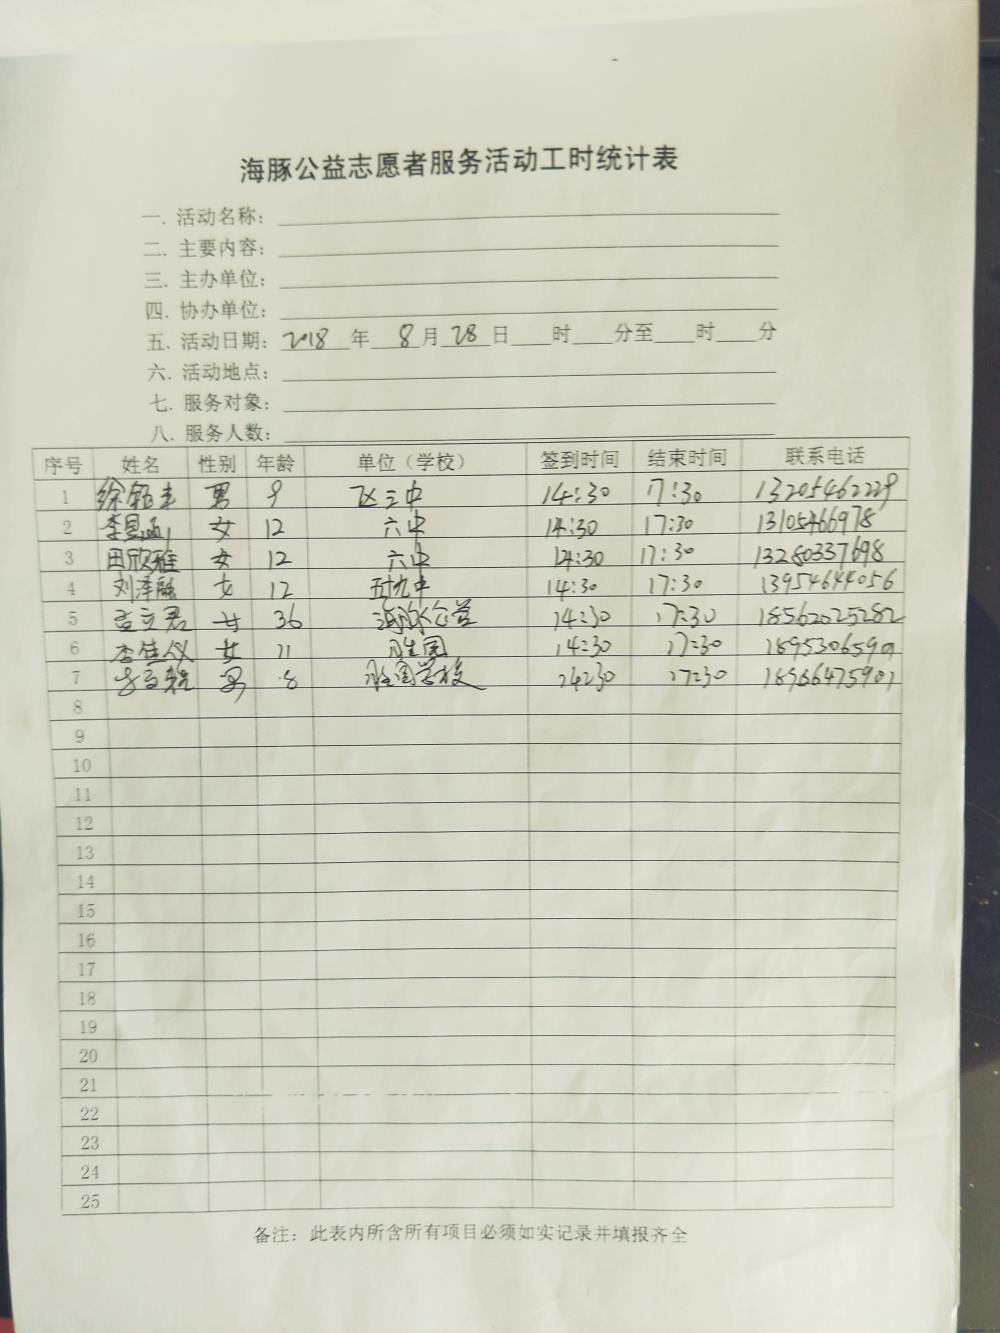 海豚公益志愿者服务活动工时统计表
一. 活动名称:
二. 主要内容:
三. 主办单位:
四. 协办单位:
五. 活动日期: 2018 年 8 月 28 日 时 分至 时 分
六. 活动地点:
七. 服务对象:
八. 服务人数:
序号 姓名 性别 年龄 单位（学校） 签到时间 结束时间 联系电话
1 徐 男 9 三中 14:30 17:30 13205462229
2 李 女 12 六中 14:30 17:30 13105466978
3 田欣雅 女 12 六中 14:30 17:30 13280337698
4 刘泽融 女 12 五十九中 14:30 17:30 13954644056
5 女 36 海豚公益 14:30 17:30 18562025282
6 李佳仪 女 11 胜国 14:30 17:30
7 男 8 胜国学校 14:30 17:30 18966475901
8
9
10
11
12
13
14
15
16
17
18
19
20
21
22
23
24
25
备注: 此表内所含所有项目必须如实记录并填报齐全